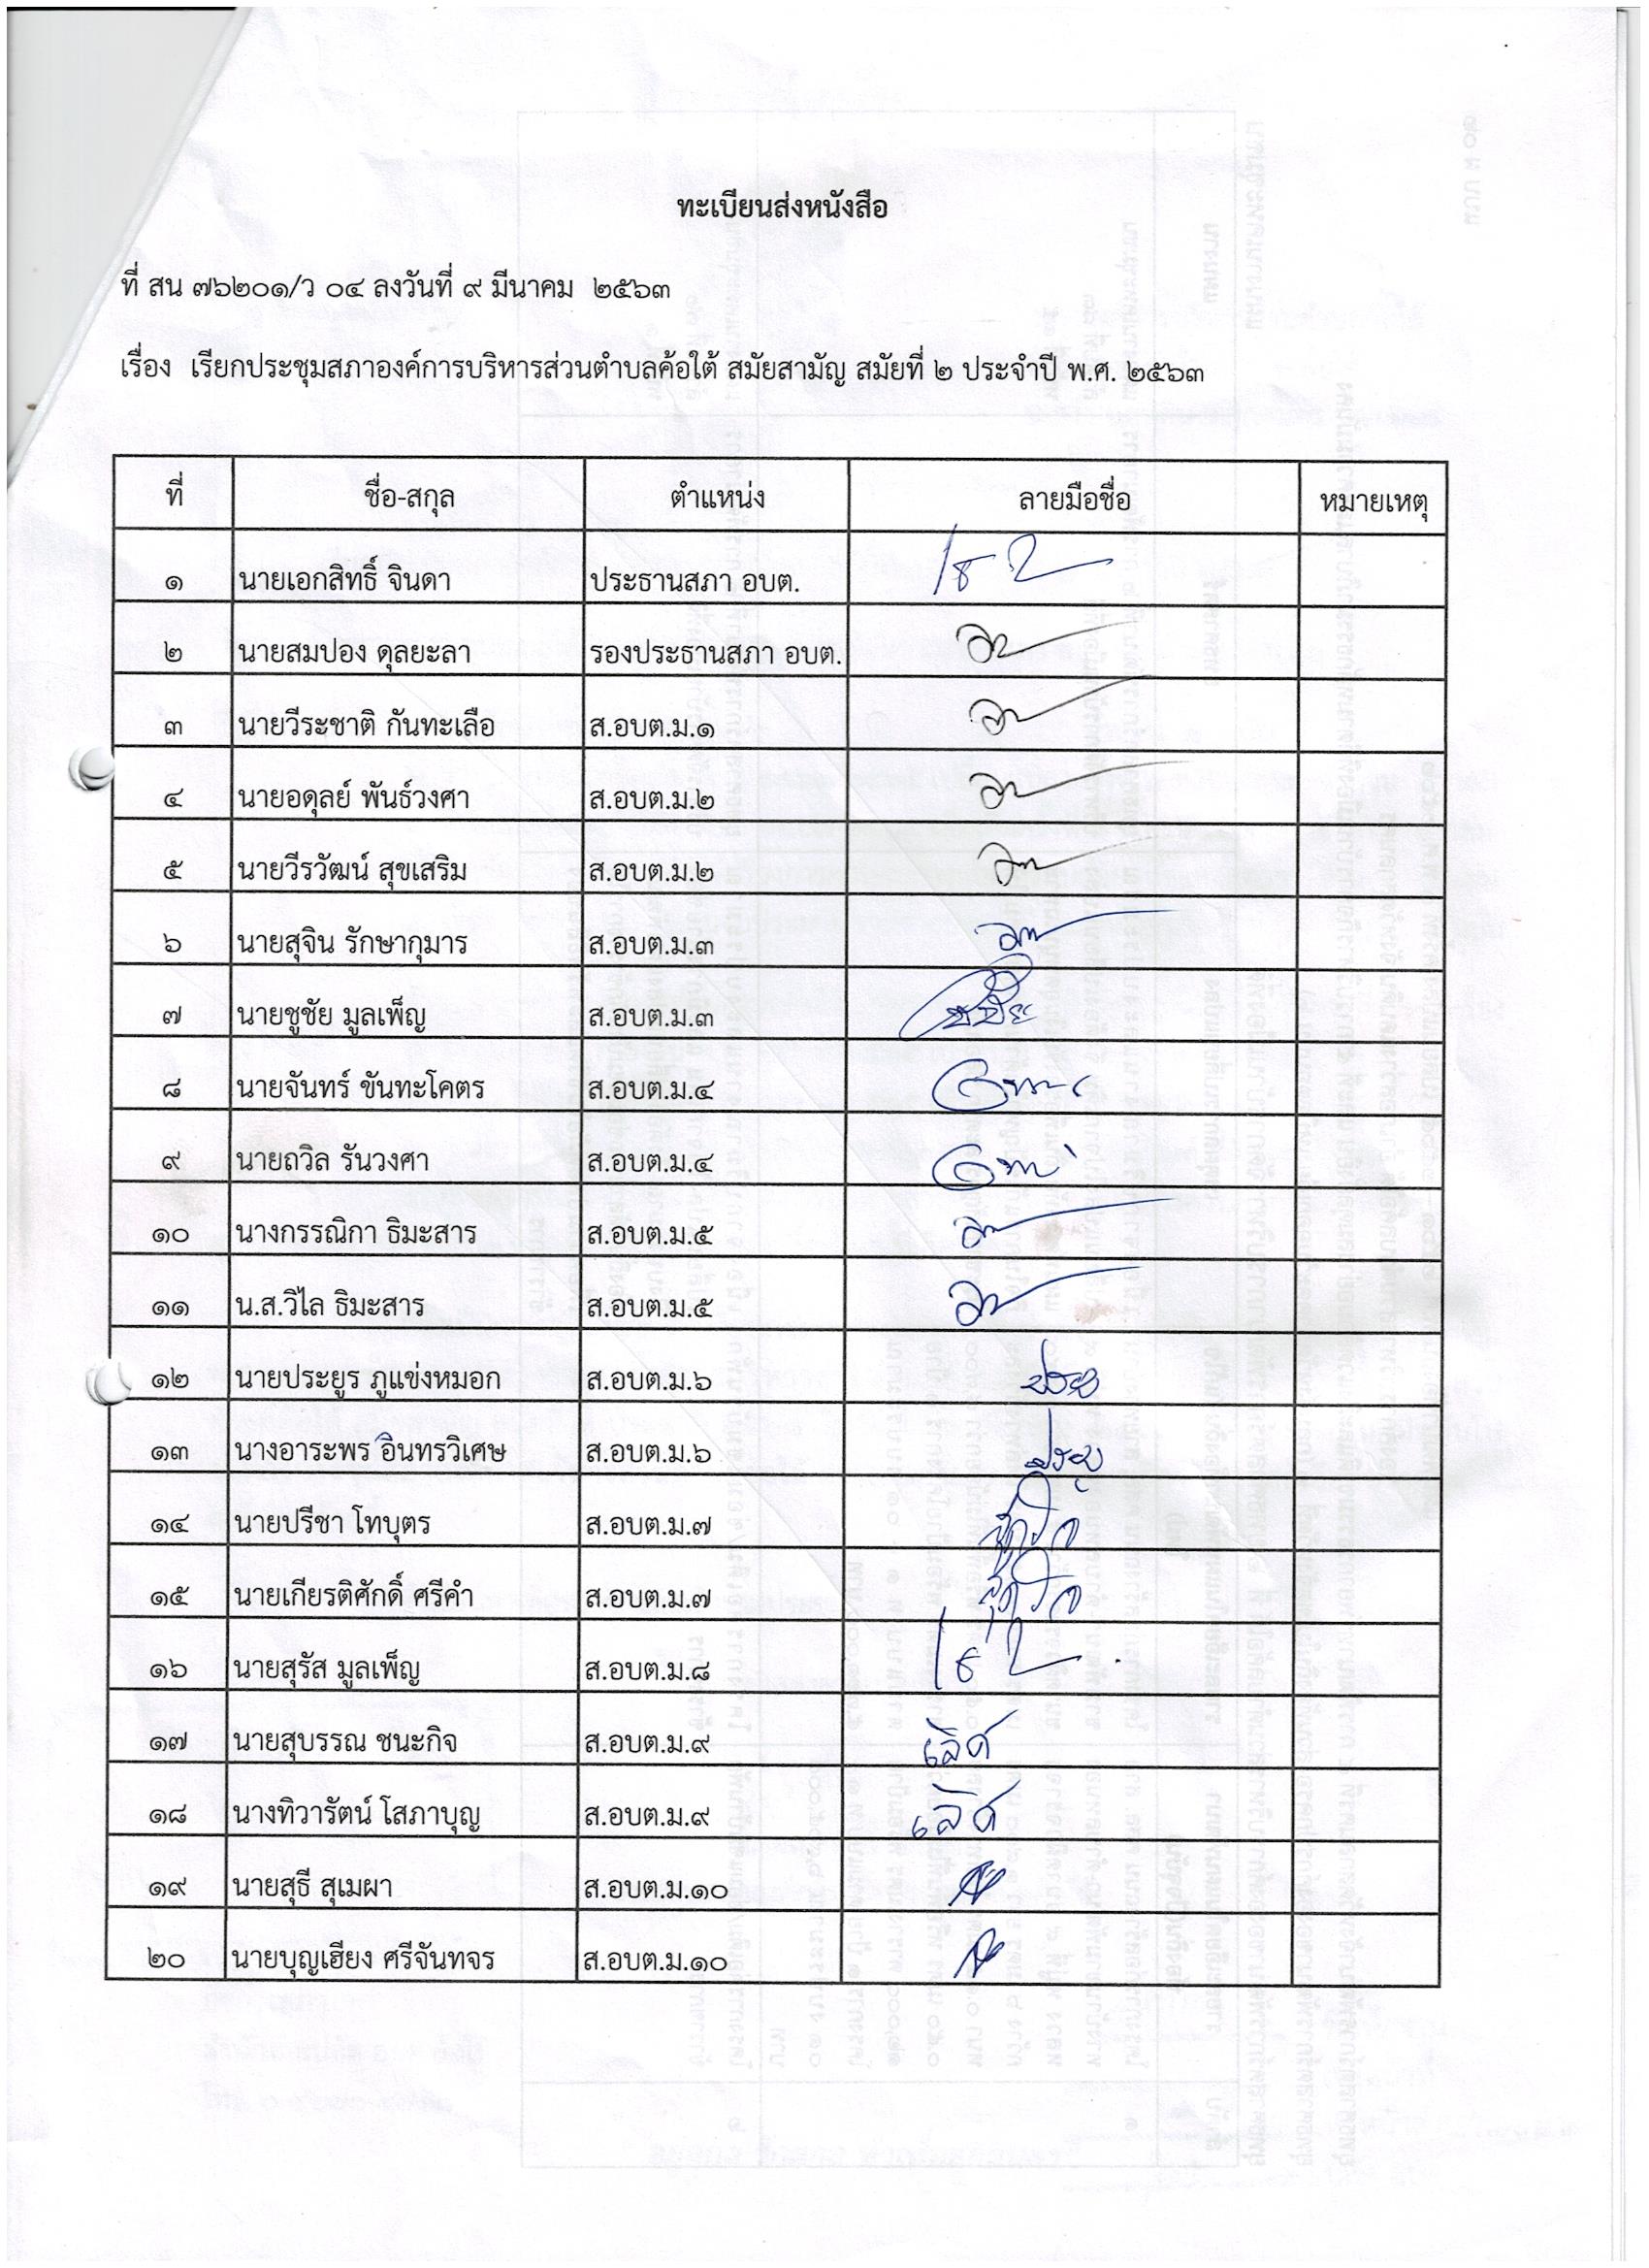 ทะเบียนส่งหนังสือ
ที่ สน ๗๖๒๐๑/ว ๐๔ ลงวันที่ ๙ มีนาคม ๒๕๖๓
เรื่อง เรียกประชุมสภาองค์การบริหารส่วนตำบลค้อใต้ สมัยสามัญ สมัยที่ ๒ ประจำปี พ.ศ. ๒๕๖๓
ที่ ชื่อ-สกุล ตำแหน่ง ลายมือชื่อ หมายเหตุ
๑ นายเอกสิทธิ์ จินดา ประธานสภา อบต.
๒ นายสมปอง ดุลยะลา รองประธานสภา อบต.
๓ นายวีระชาติ กันทะเลือ ส.อบต.ม.๑
๔ นายอดุลย์ พันธ์วงศา ส.อบต.ม.๒
๕ นายวีรวัฒน์ สุขเสริม ส.อบต.ม.๒
๖ นายสุจิน รักษากุมาร ส.อบต.ม.๓
๗ นายชูชัย มูลเพ็ญ ส.อบต.ม.๓
๘ นายจันทร์ ขันทะโคตร ส.อบต.ม.๔
๙ นายถวิล รันวงศา ส.อบต.ม.๔
๑๐ นางกรรณิกา ธิมะสาร ส.อบต.ม.๕
๑๑ น.ส.วิไล ธิมะสาร ส.อบต.ม.๕
๑๒ นายประยูร ภูแข่งหมอก ส.อบต.ม.๖
๑๓ นางอาระพร อินทรวิเศษ ส.อบต.ม.๖
๑๔ นายปรีชา โทบุตร ส.อบต.ม.๗
๑๕ นายเกียรติศักดิ์ ศรีคำ ส.อบต.ม.๗
๑๖ นายสุรัส มูลเพ็ญ ส.อบต.ม.๘
๑๗ นายสุบรรณ ชนะกิจ ส.อบต.ม.๙
๑๘ นางทิวารัตน์ โสภาบุญ ส.อบต.ม.๙
๑๙ นายสุธี สุเมผา ส.อบต.ม.๑๐
๒๐ นายบุญเฮียง ศรีจันทจร ส.อบต.ม.๑๐